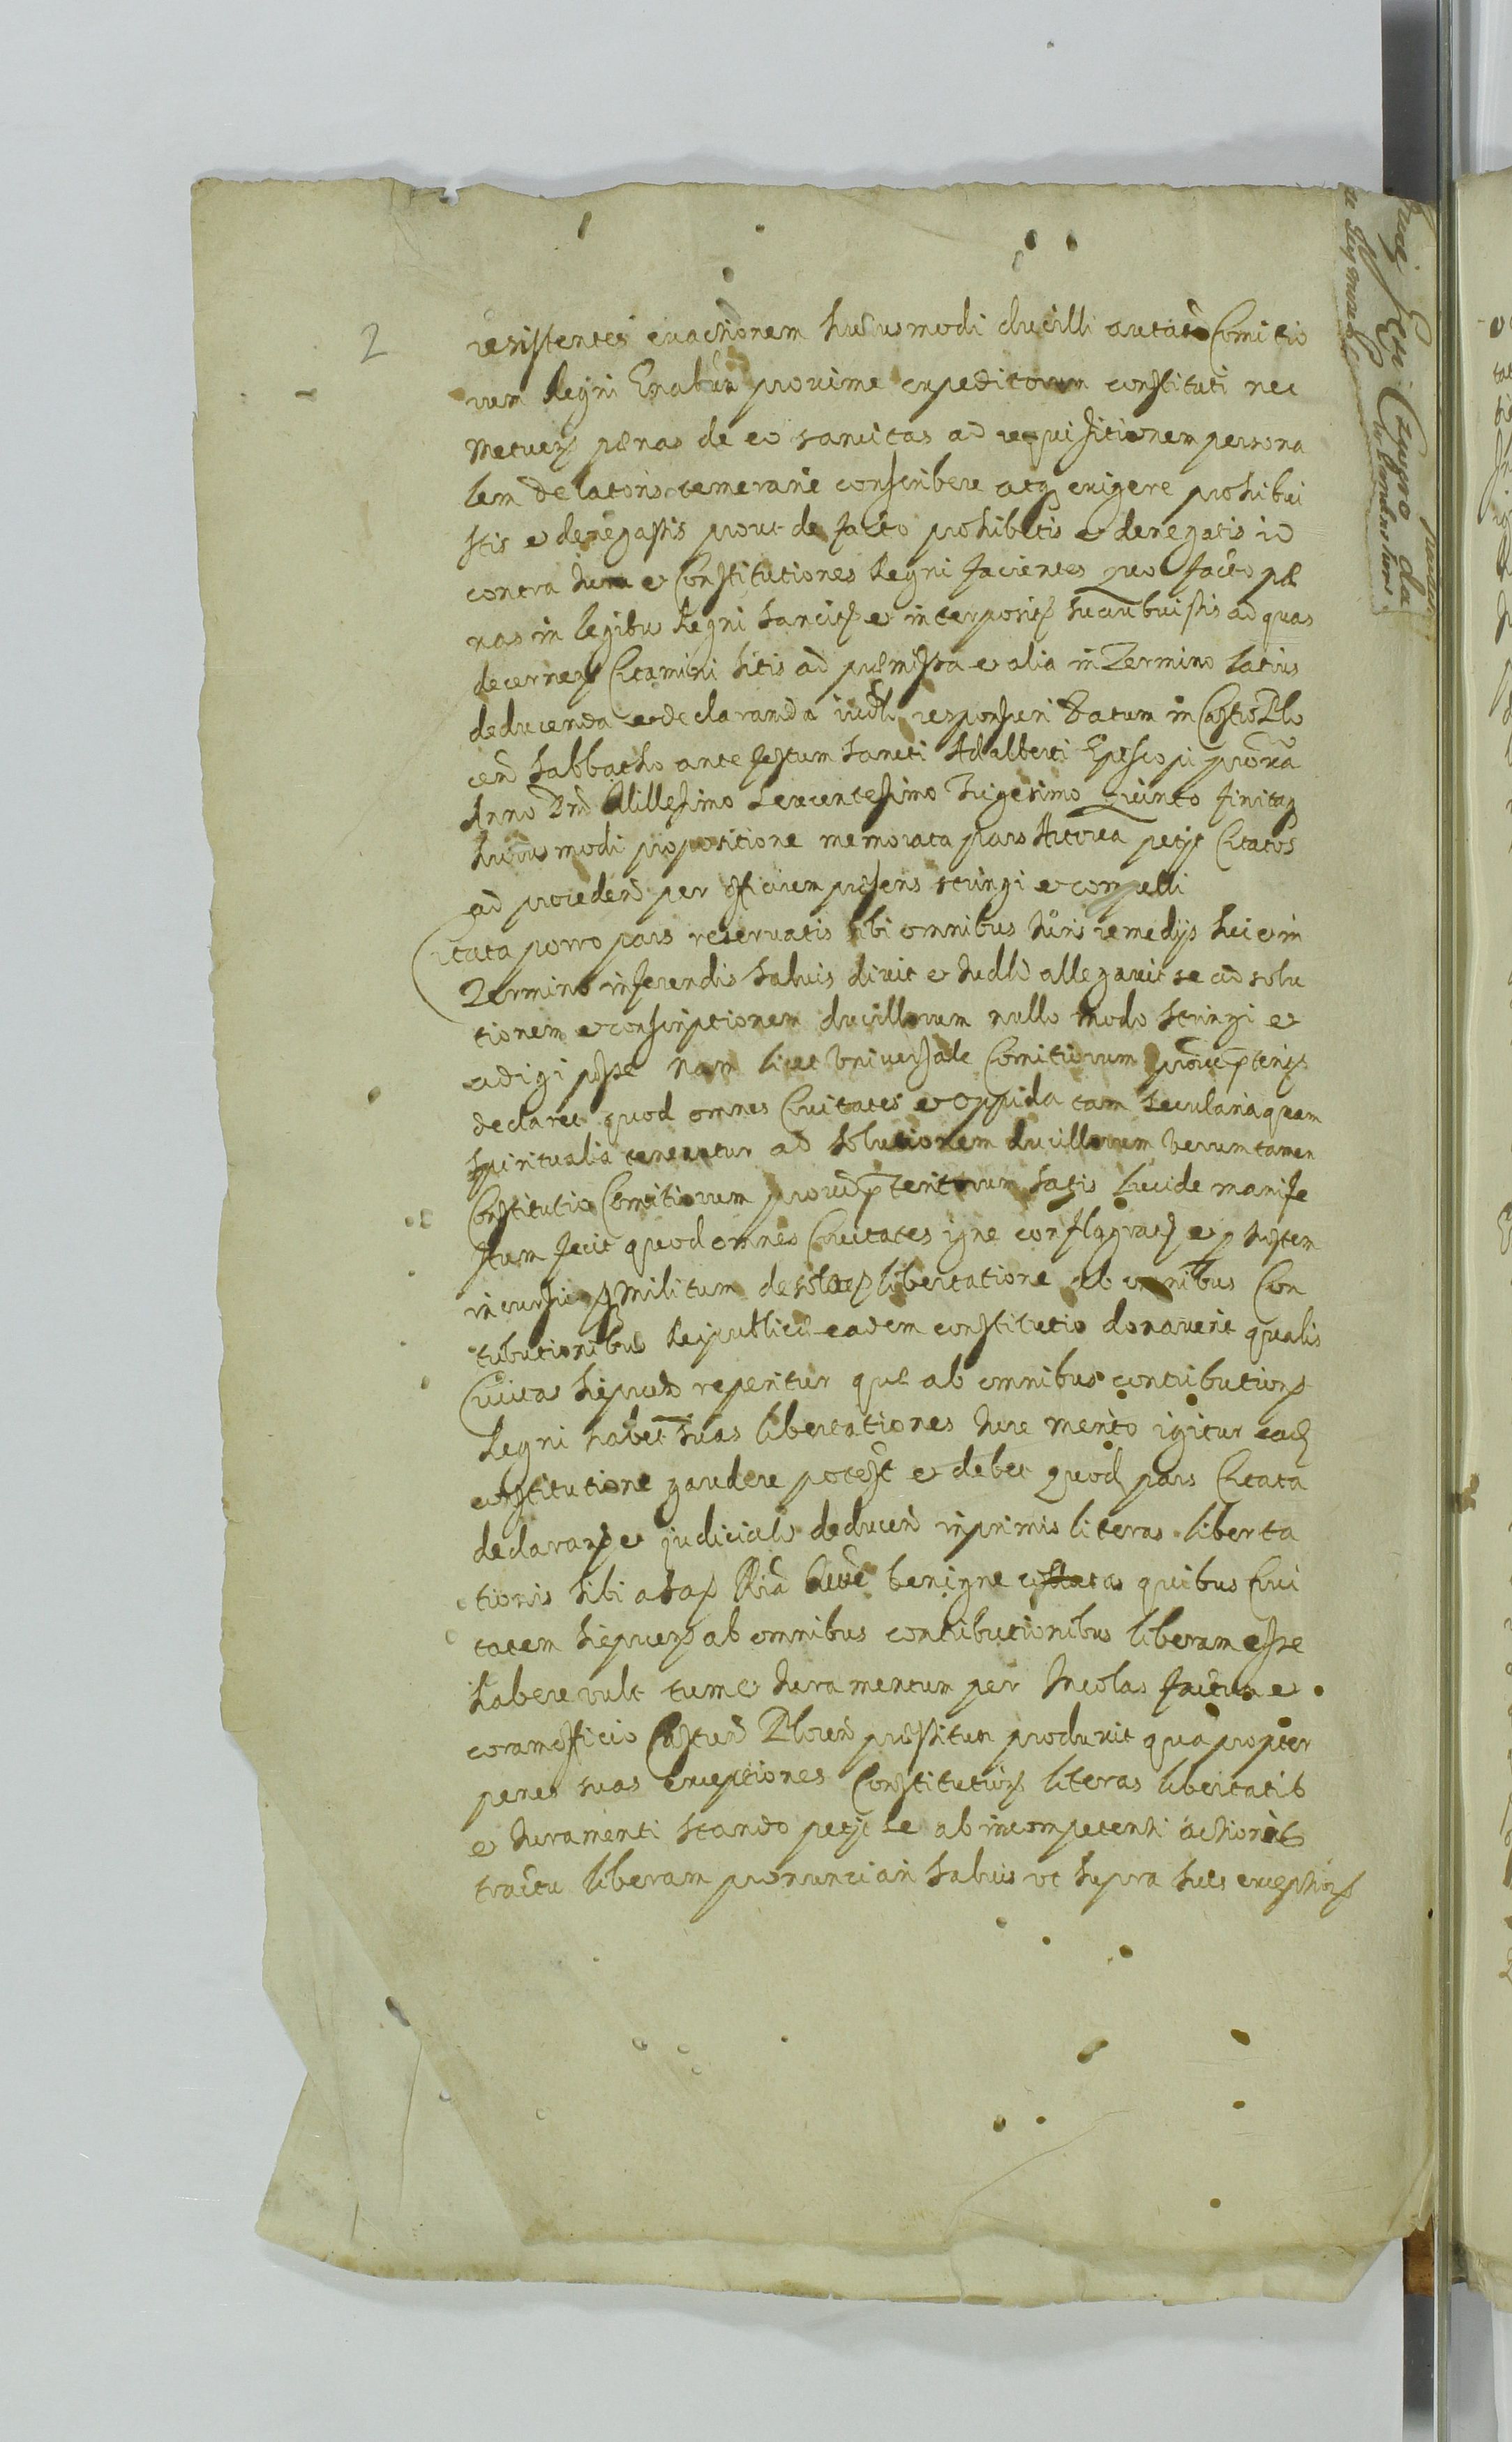 2
resistentes exactionem huiusmodi ducilli autate Comitio
rum Regni Gnalium proxime expeditorum constituti nec
metuen pænas de eo sancitas ad requisitionem persona
lem delatoris temerarie conscribere atq exigere prohibui
stis et denegastis prout de facto prohibetis et denegatis id
contra Jura et Constitutiones Regni facientes quo facto pæ
nas in legibus Regni sancit et interposit sucubuistis ad quas
decernen Citamini sitis ad præmissa et alia in Termino latius
deducenda et declaranda iudlr responsuri Datum in Castro Plo
cen Sabbatho ante festum Sancti Adalberti Episcopi prox
Anno Dni Millesimo Sexcentesimo Trigesimo Quinto finitaq
huiusmodi propositione memorata pars Actorea petijt Citatos
ad proceden per officium præsens stringi et compelli
Citata porro pars reservatis sibi omnibus Juris remedijs hic et in
Termino inferendis salvis dixit et Judlr allegavit se ad solu
tionem et conscriptionem ducillorum nullo modo stringi et
adigi posse Nam licet Universale Comitiorum
declaret quod omnes Civitates et Oppida tam Secularia quam
Spiritualia teneantur ad Solutionem ducillorum Verumtamen
Constitutio Comitiorum satis lucide manife
stum fecit quod omnes Civitates igne conflagrat et p hostem
militum desolat libertatione ab omnibus Con
tributionibus Reipublicæ eadem constitutio donaverit qualis
Civitas Siepcen reperitur quæ ab omnibus contribution
Regni habet suas libertationes Jure merito igitur ead
constitutione gaudere potest et debet Quod pars Citata
declaran et judicialr deducen inprimis literas liberta
tionis sibi a benigne quibus Civi
tatem Siepcen ab omnibus contributionibus liberam esse
habere vult tum et Juramentum per Incolas factum et
coram officio Castren Plocen præstitum produxit qua propter
penes suas exceptiones Constitution literas libertatis
et Juramenti stando petijt se ab incompetenti actionis
tractu liberam pronunciari salvis ut supra suis exception